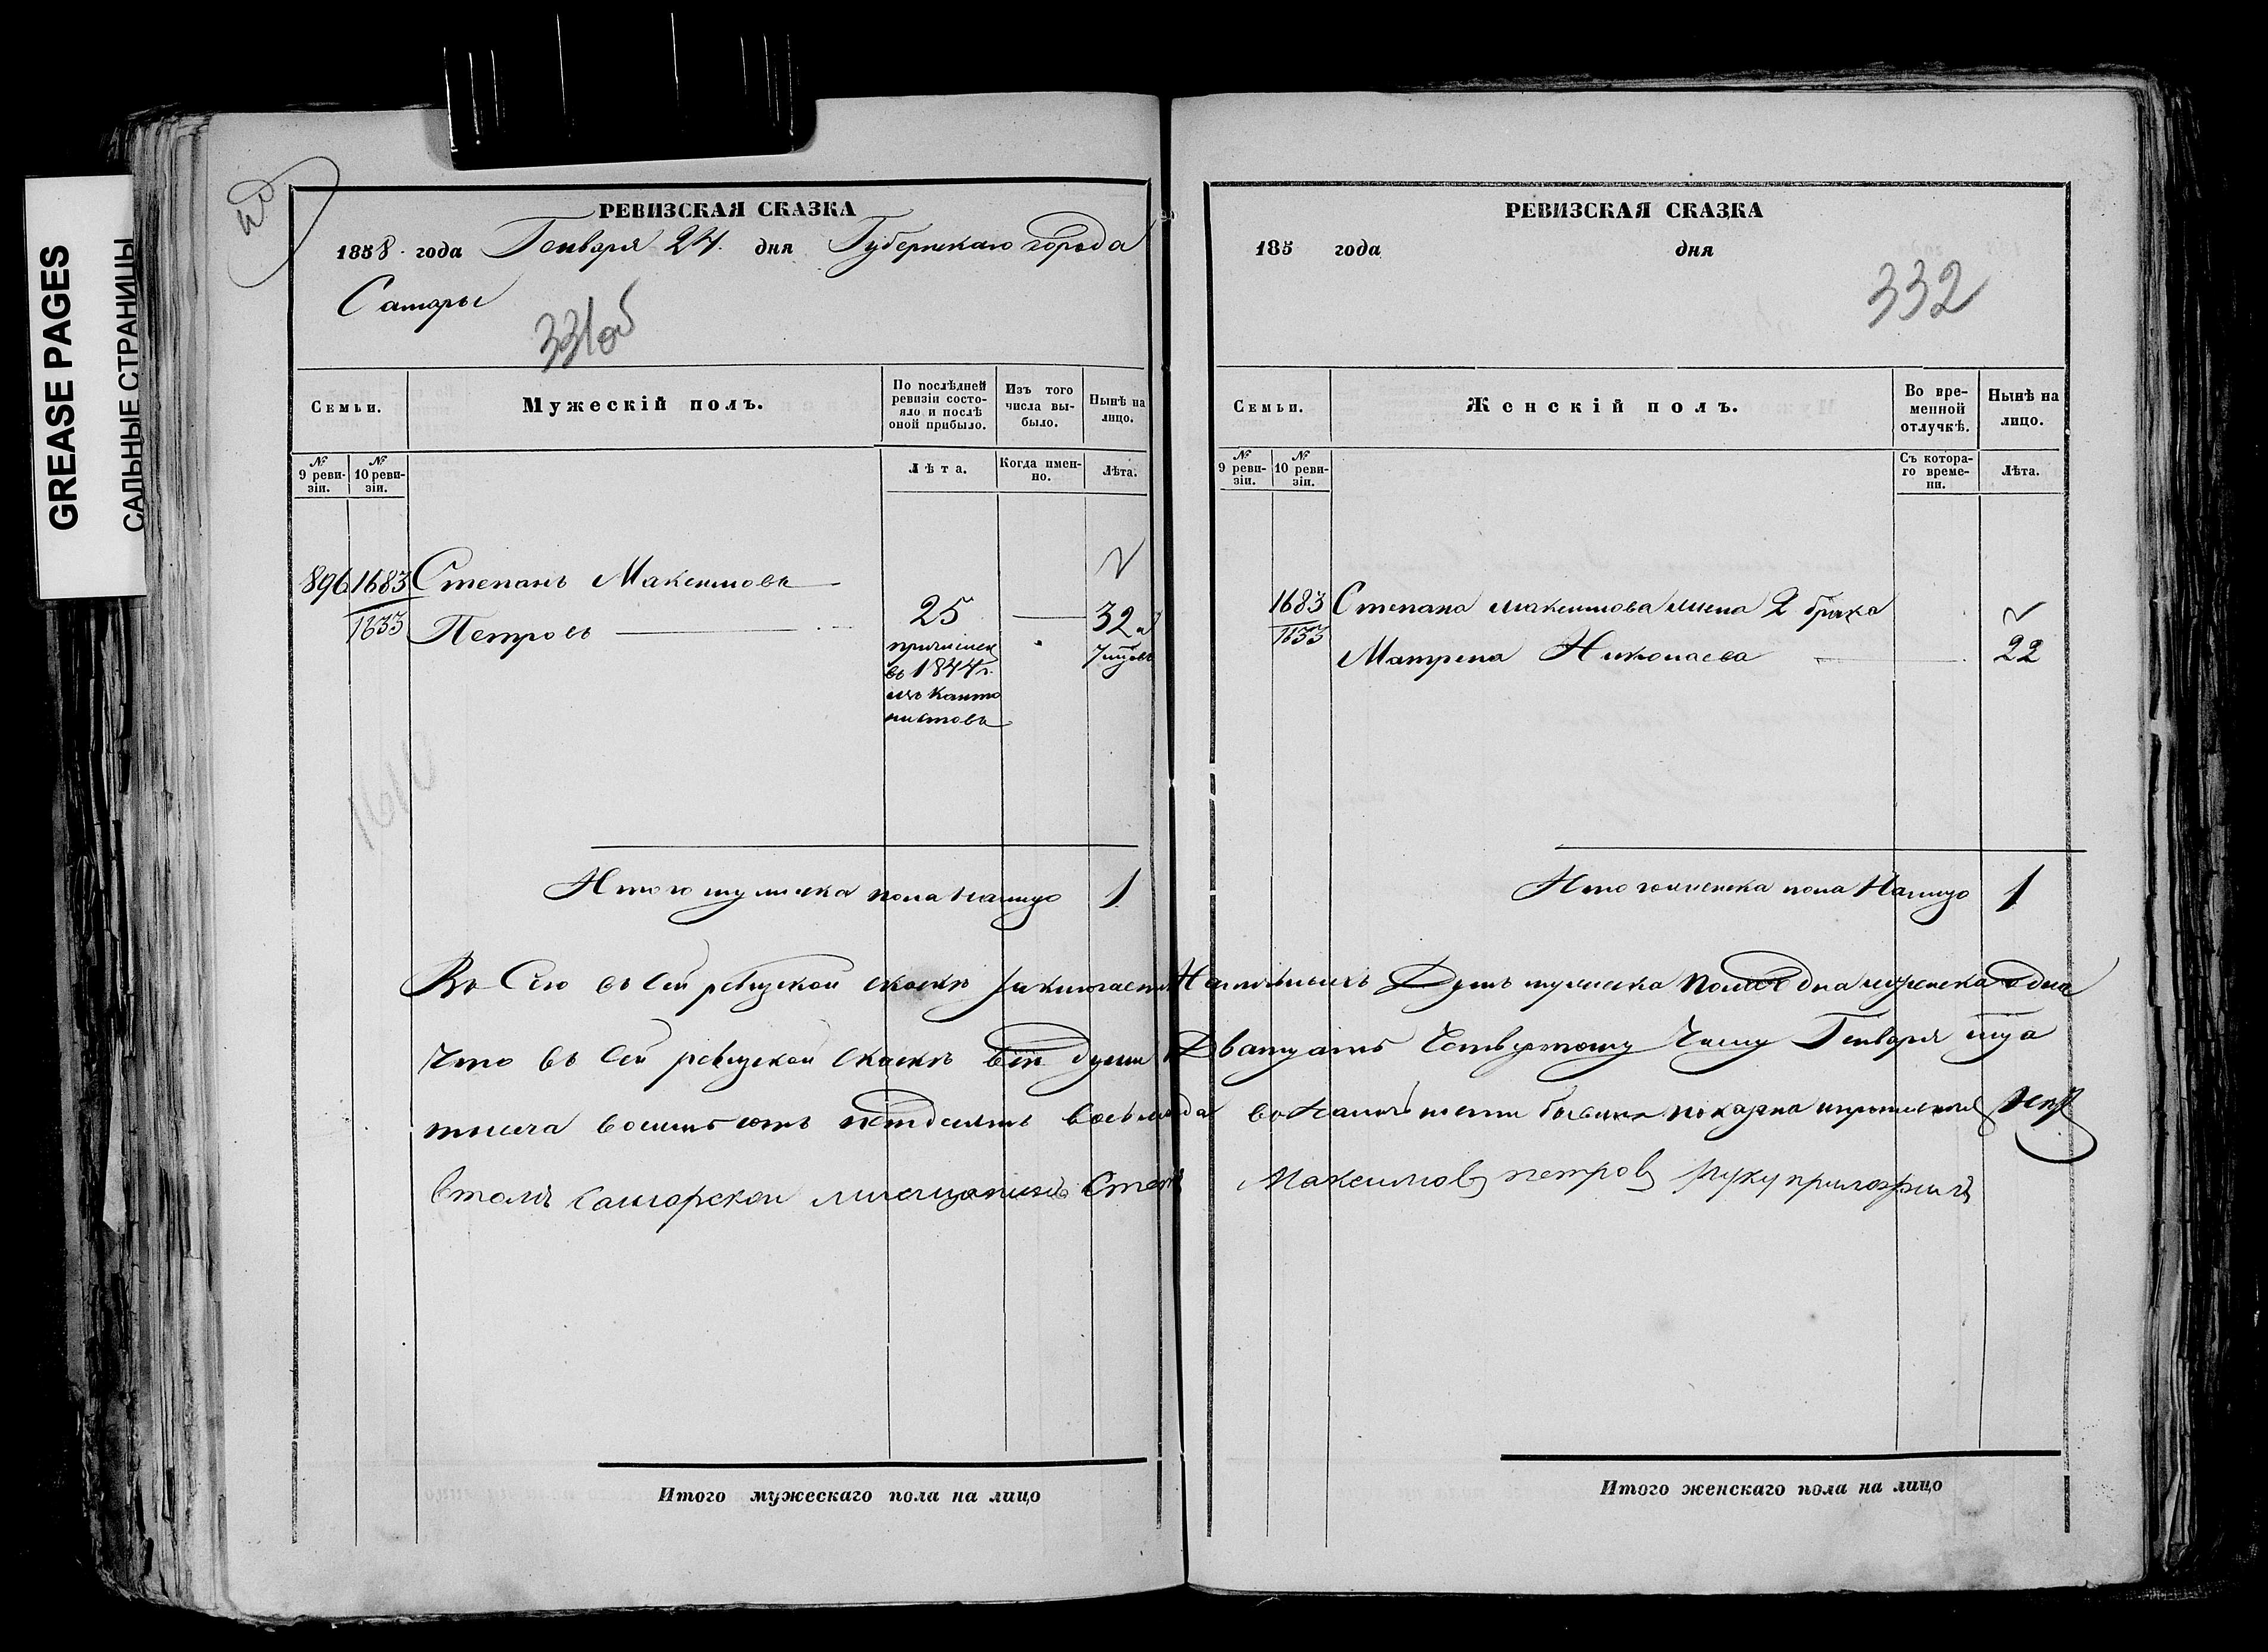 GREASE PAGES
САЛЬНЫЕ СТРАНИЦЫ
РЕВИЗСКАЯ СКАЗКА
1858 года Генваря 24 дня Губернскаго города
Самары
331об
Семьи.
Мужескій полъ.
По послѣдней ревизіи состояло и послѣ оной прибыло.
Изъ того числа выбыло.
Нынѣ на лицо.
№ 9 ревизіи.
№ 10 ревизіи.
Лѣта.
Когда именно.
Лѣта.
896 1683 Степанъ Максимовъ
1633 Петровъ 25 — 32
причислен
въ 1844 г.
изъ канто
нистовъ
1610
Итого мужеска пола налицо 1
РЕВИЗСКАЯ СКАЗКА
185 года дня
332
Семьи.
Женскій полъ.
Во временной отлучкѣ.
Нынѣ на лицо.
№ 9 ревизіи.
№ 10 ревизіи.
Съ котораго времени.
Лѣта.
1683 Степана Максимова жена 2 брака
1633 Матрена Николаева 22
Итого женска пола налицо 1
Въ сей ревизской сказке заключается Наличныхъ Душъ мужеска пола одна и женска одна
Что въ сей ревизской сказке все души к Двадцать Четвертому Числу Генваря
тысяча восемьсотъ петдесятъ восьмаго да въ наличности бывшия показаны
втомъ самарской мещанинъ Степ Максимовъ петровъ руку приложилъ
Итого мужескаго пола на лицо
Итого женскаго пола на лицо